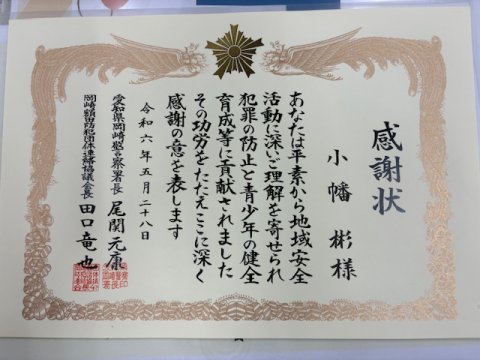 感謝状
小幡 彬 様
あなたは平素から地域安全
活動に深いご理解を寄せられ
犯罪の防止と青少年の健全
育成等に貢献されました
その功労をたたえここに深く
感謝の意を表します
令和六年五月二十八日
愛知県岡崎警察署長 尾関元康
岡崎額田防犯団体連絡協議会長 田口竜也